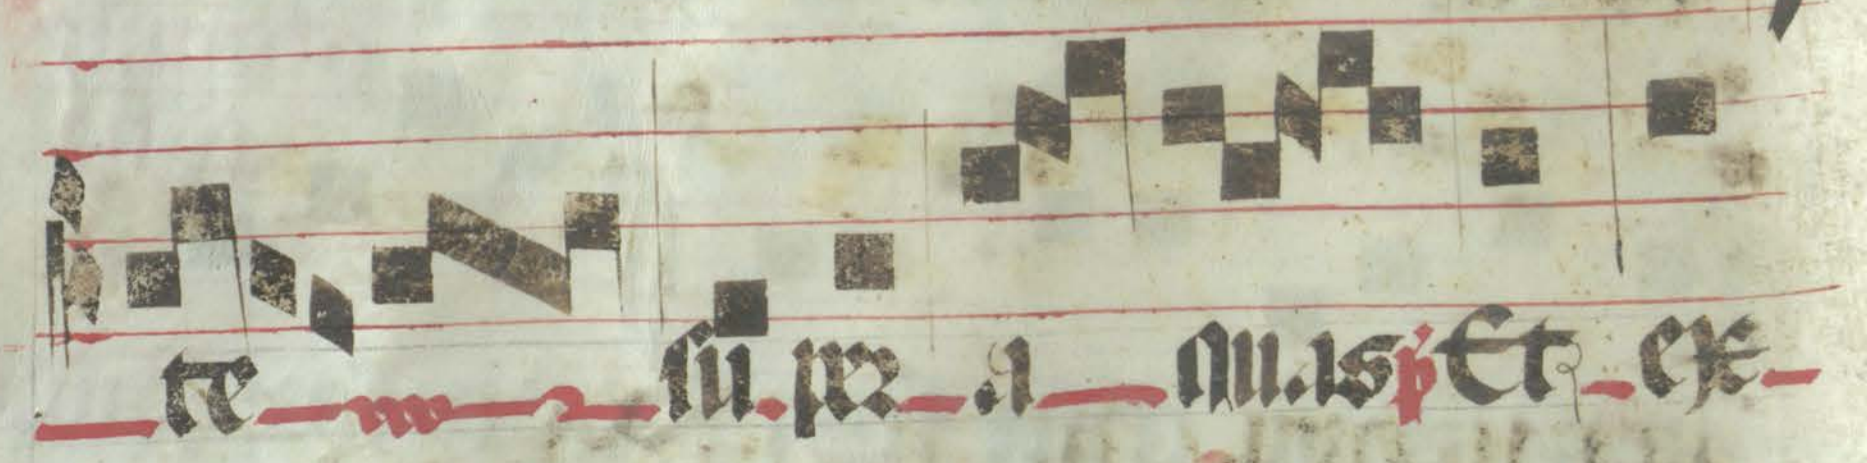 te su per a quas p Et ex